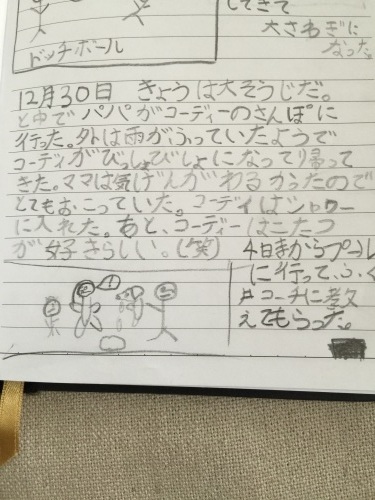 してきて
大さわぎに
なった。
ドッチボール
12月30日 きょうは大そうじだ。
と中でパパがコーディーのさんぽに
行った。外は雨がふっていたようで
コーディがびっしょびしょになって帰って
きた。ママは気げんがわるかったので
とてもおこっていた。コーディはシャワー
に入れた。あと、コーディーはこたつ
が好きらしい。(笑)
4日まからプール
に行って、ふく
コーチに教
えてもらった。